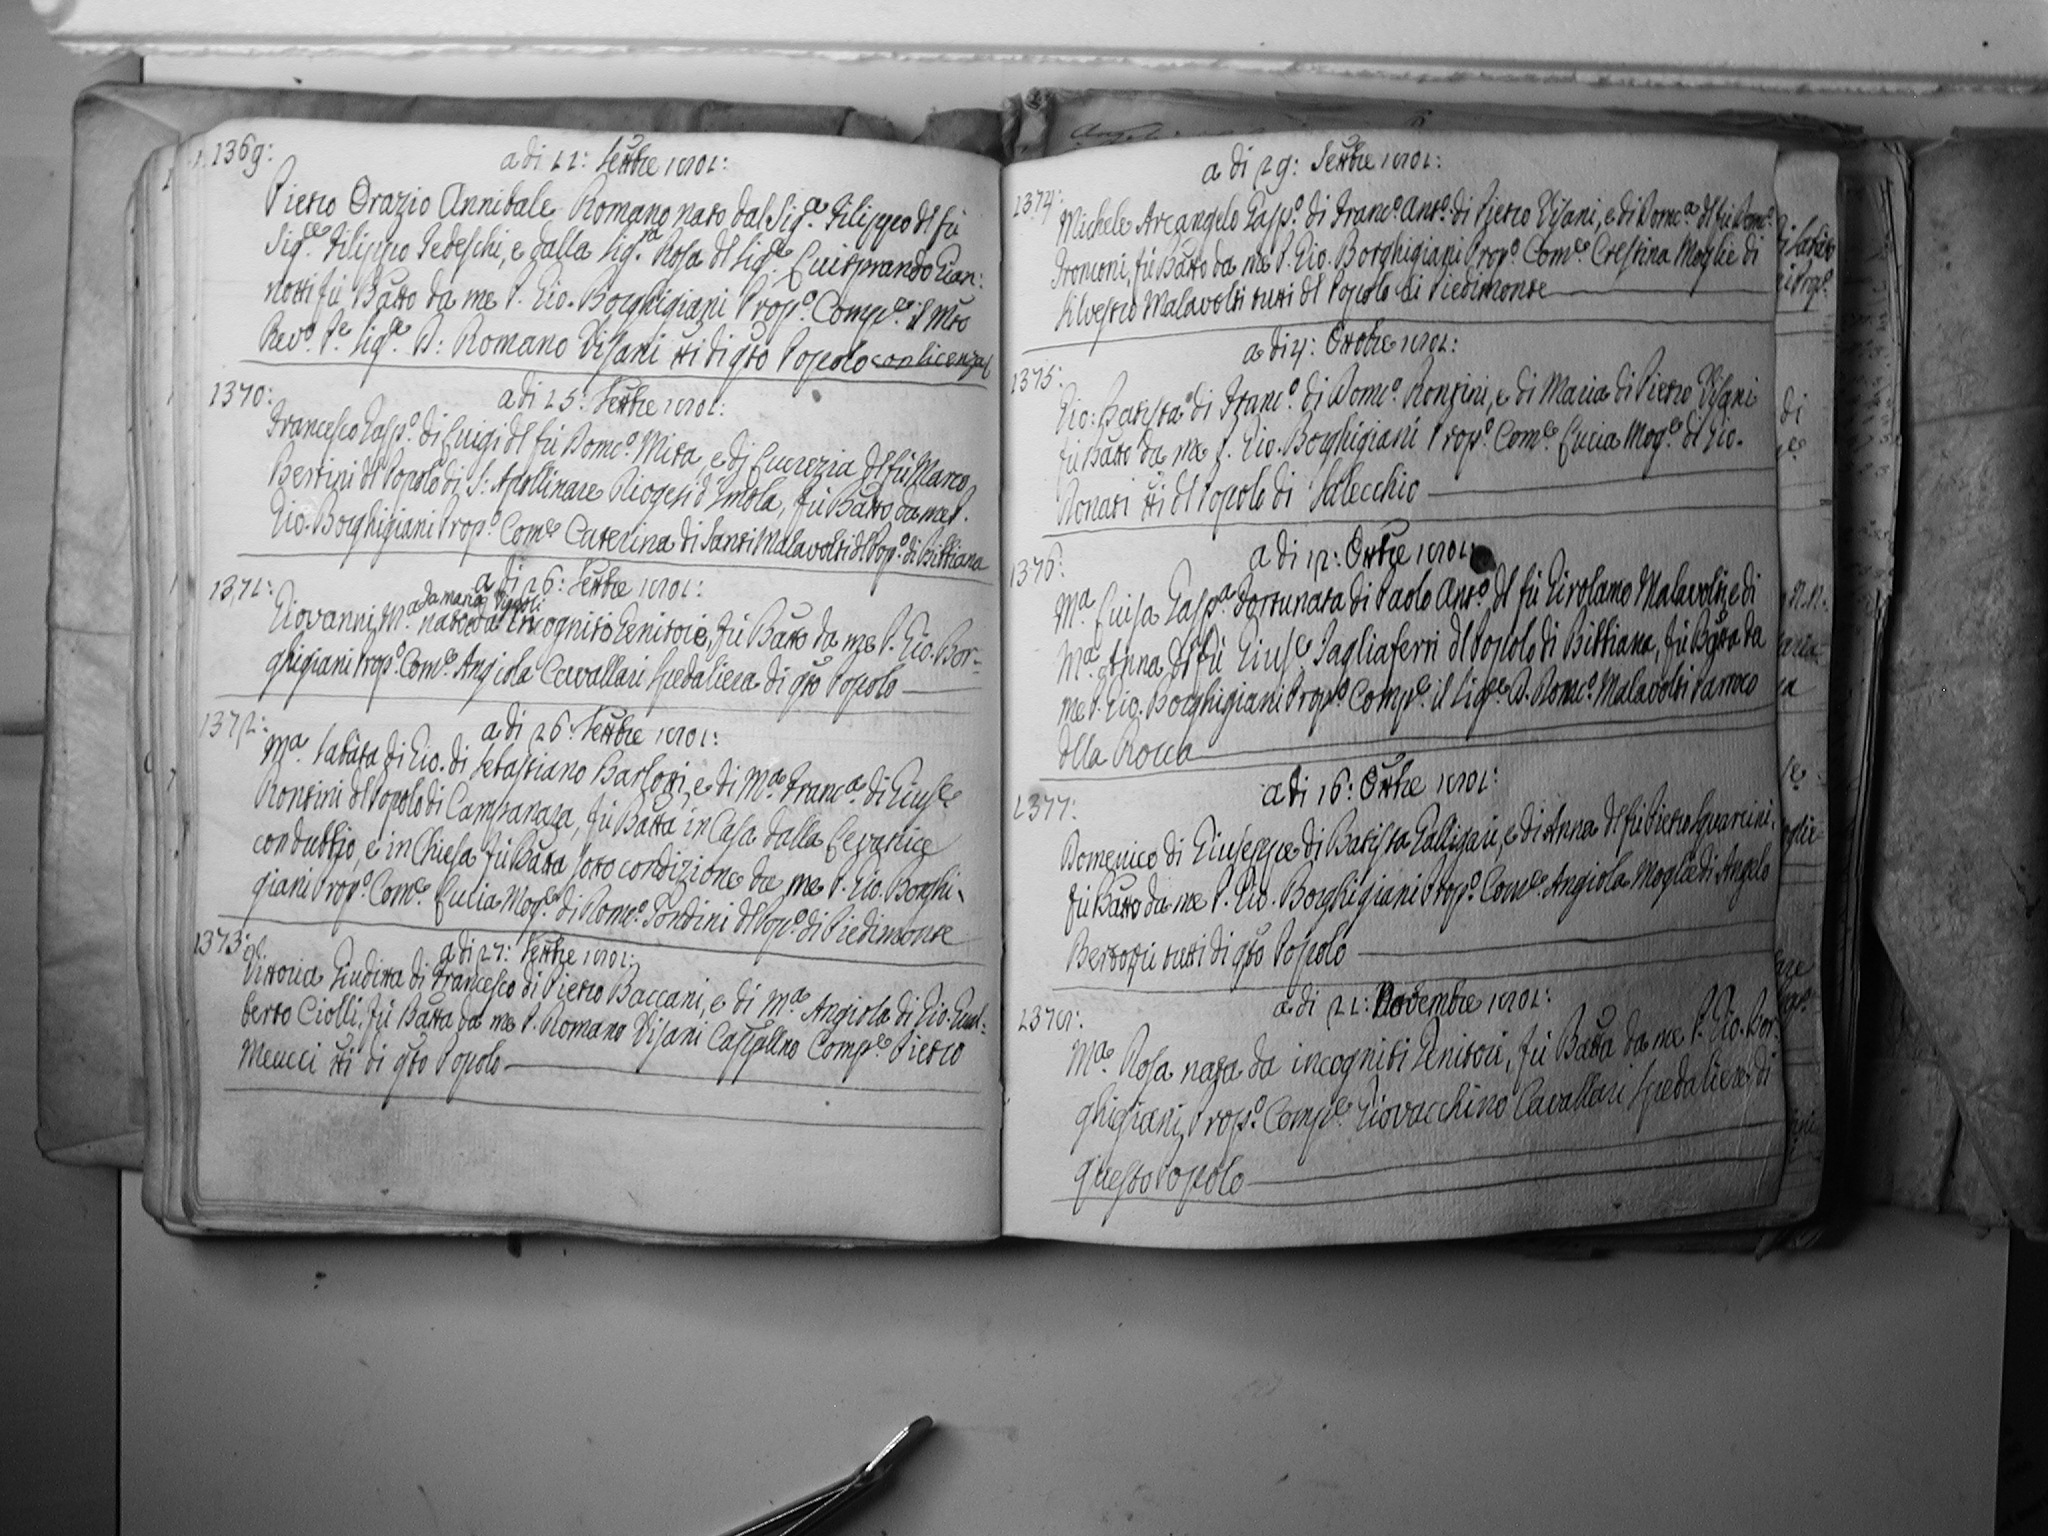 1369:
a di 22: Settbre 1801:
Pietro Orazio Annibale Romano nato dal Sig.e Filippo dl fù
Sig.e Filippo Tedeschi, e dalla Sig.ra Rosa dl Sig.e Luisprando Gian:
notti fù Batto da me P. Gio. Borghigiani Prop.o Comp.e il Mto
Rev.o P.e Sig.e D: Romano Visani tti di qto Popolo con licenza
1370:
a di 25: Settbre 1801:
Francesco Gasp.o di Luigi dl fù Dom.co Mita, e di Lucrezia dl fù Marco
Bertini dl Popolo di S: Apollinare Diogesi d'Imola, fù Batto da me P.
Gio. Borghigiani Prop.o Com.e Caterina di Santi Malavolti dl Pop.o di Bibbiana
1371:
a di 26: Settbre 1801:
da maria
Giovanni M.a nato da Incognito Genitore, fù Batto da me P. Gio. Bor-
ghigiani Prop.o Com.e Angiola Cavallari Spedaliera di qto Popolo
1372:
a di 26: Settbre 1801:
M.a Sabata di Gio. di Sebastiano Barlotti, e di M.a Franc.a di Gius.e
Rontini dl Popolo di Campanara, fù Batta in Casa dalla Levatrice
con dubbio, e in Chiesa fù Batta sotto condizione da me P. Gio. Borghi-
giani Prop.o Com.e Lucia Mog.e di Dom.co Pondini dl Pop.o di Piedimonte
1373:
a di 27: Settbre 1801:
Vittoria Giuditta di Francesco di Pietro Baccani, e di M.a Angiola di Gio. Gual:
berto Ciolli, fù Batta da me P. Romano Visani Cappllno Comp.e Pietro
Meucci tti di qto Popolo
a di 29: Settbre 1801:
1374:
Michele Arcangelo Gasp.o di Franc.o Ant.o di Pietro Visani, e di Dom.ca dl fù Dom.co
Tronconi, fù Batto da me P. Gio. Borghigiani Prop.o Com.e Crestina Moglie di
Silvestro Malavolti tutti dl Popolo di Piedimonte
a di 4: Ottobre 1801:
1375:
Gio: Batista di Franc.o di Dom.co Rontini, e di Maria di Pietro Visani
fù Batto da me P. Gio. Borghigiani Prop.o Com.e Lucia Mog.e dl Gio.
Donati tti dl Popolo di Salecchio
a di 12: Ottbre 1801:
1376:
M.a Luisa Gasp.a Fortunata di Paolo Ant.o dl fù Girolamo Malavolti, e di
M.a Anna dl fù Gius.e Tagliaferri dl Popolo di Bibbiana, fù Batta da
me P. Gio. Borghigiani Prop.o Comp.e il Sig.e D. Dom.co Malavolti Parroco
dlla Rocca
a di 16: Ottbre 1801:
1377:
Domenico di Giuseppe di Batista Galligari, e di Anna dl fù Pietro Squarcini,
fù Batto da me P. Gio. Borghigiani Prop.o Com.e Angiola Moglie di Angelo
Bertozzi tutti di qto Popolo
a di 22: Novembre 1801:
1378:
M.a Rosa nata da incogniti Genitori, fù Batta da me P. Gio. Bor-
ghigiani Prop.o Comp.e Giovacchino Cavallari Spedaliere di
questo Popolo